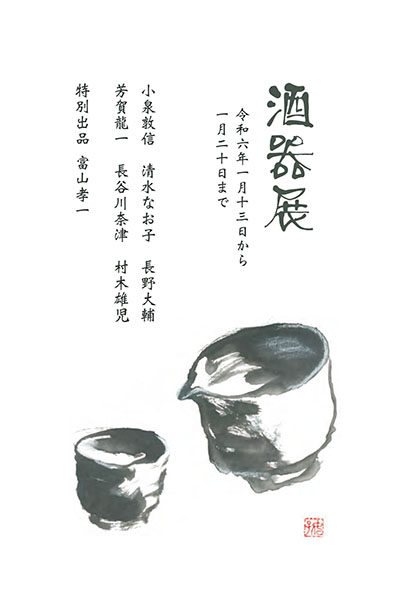 酒器展
令和六年一月十三日から
一月二十日まで
小泉敦信 清水なお子 長野大輔
芳賀龍一 長谷川奈津 村木雄児
特別出品 富山孝一